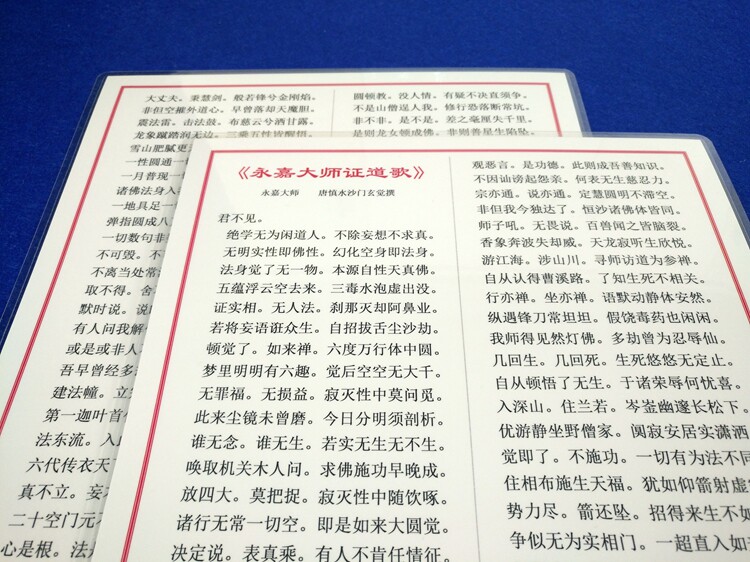 大丈夫。秉慧剑。般若锋兮金刚焰。
非但空摧外道心。早曾落却天魔胆。
震法雷。击法鼓。布慈云兮洒甘露。
龙象蹴踏润无边。三乘五性皆醒悟。
雪山肥腻更
一性圆通一
一月普现一
诸佛法身入
一地具足一
弹指圆成八
一切数句非
不可毁。不
不离当处常
取不得。舍
默时说。说
有人问我解
或是或非人
吾早曾经多
建法幢。立
第一迦叶首
法东流。入
六代传衣天
真不立。妄
二十空门元
心是根。法
圆顿教。没人情。有疑不决直须争。
不是山僧逞人我。修行恐落断常坑。
非不非。是不是。差之毫厘失千里。
是则龙女顿成佛。非则善星生陷坠。
《永嘉大师证道歌》
永嘉大师 唐慎水沙门玄觉撰
君不见。
绝学无为闲道人。不除妄想不求真。
无明实性即佛性。幻化空身即法身。
法身觉了无一物。本源自性天真佛。
五蕴浮云空去来。三毒水泡虚出没。
证实相。无人法。刹那灭却阿鼻业。
若将妄语诳众生。自招拔舌尘沙劫。
顿觉了。如来禅。六度万行体中圆。
梦里明明有六趣。觉后空空无大千。
无罪福。无损益。寂灭性中莫问觅。
此来尘镜未曾磨。今日分明须剖析。
谁无念。谁无生。若实无生无不生。
唤取机关木人问。求佛施功早晚成。
放四大。莫把捉。寂灭性中随饮啄。
诸行无常一切空。即是如来大圆觉。
决定说。表真乘。有人不肯任情征。
观恶言。是功德。此则成吾善知识。
不因讪谤起怨亲。何表无生慈忍力。
宗亦通。说亦通。定慧圆明不滞空。
非但我今独达了。恒沙诸佛体皆同。
师子吼。无畏说。百兽闻之皆脑裂。
香象奔波失却威。天龙寂听生欣悦。
游江海。涉山川。寻师访道为参禅。
自从认得曹溪路。了知生死不相关。
行亦禅。坐亦禅。语默动静体安然。
纵遇锋刀常坦坦。假饶毒药也闲闲。
我师得见然灯佛。多劫曾为忍辱仙。
几回生。几回死。生死悠悠无定止。
自从顿悟了无生。于诸荣辱何忧喜。
入深山。住兰若。岑崟幽邃长松下。
优游静坐野僧家。阒寂安居实潇洒
觉即了。不施功。一切有为法不同
住相布施生天福。犹如仰箭射虚
势力尽。箭还坠。招得来生不如
争似无为实相门。一超直入如